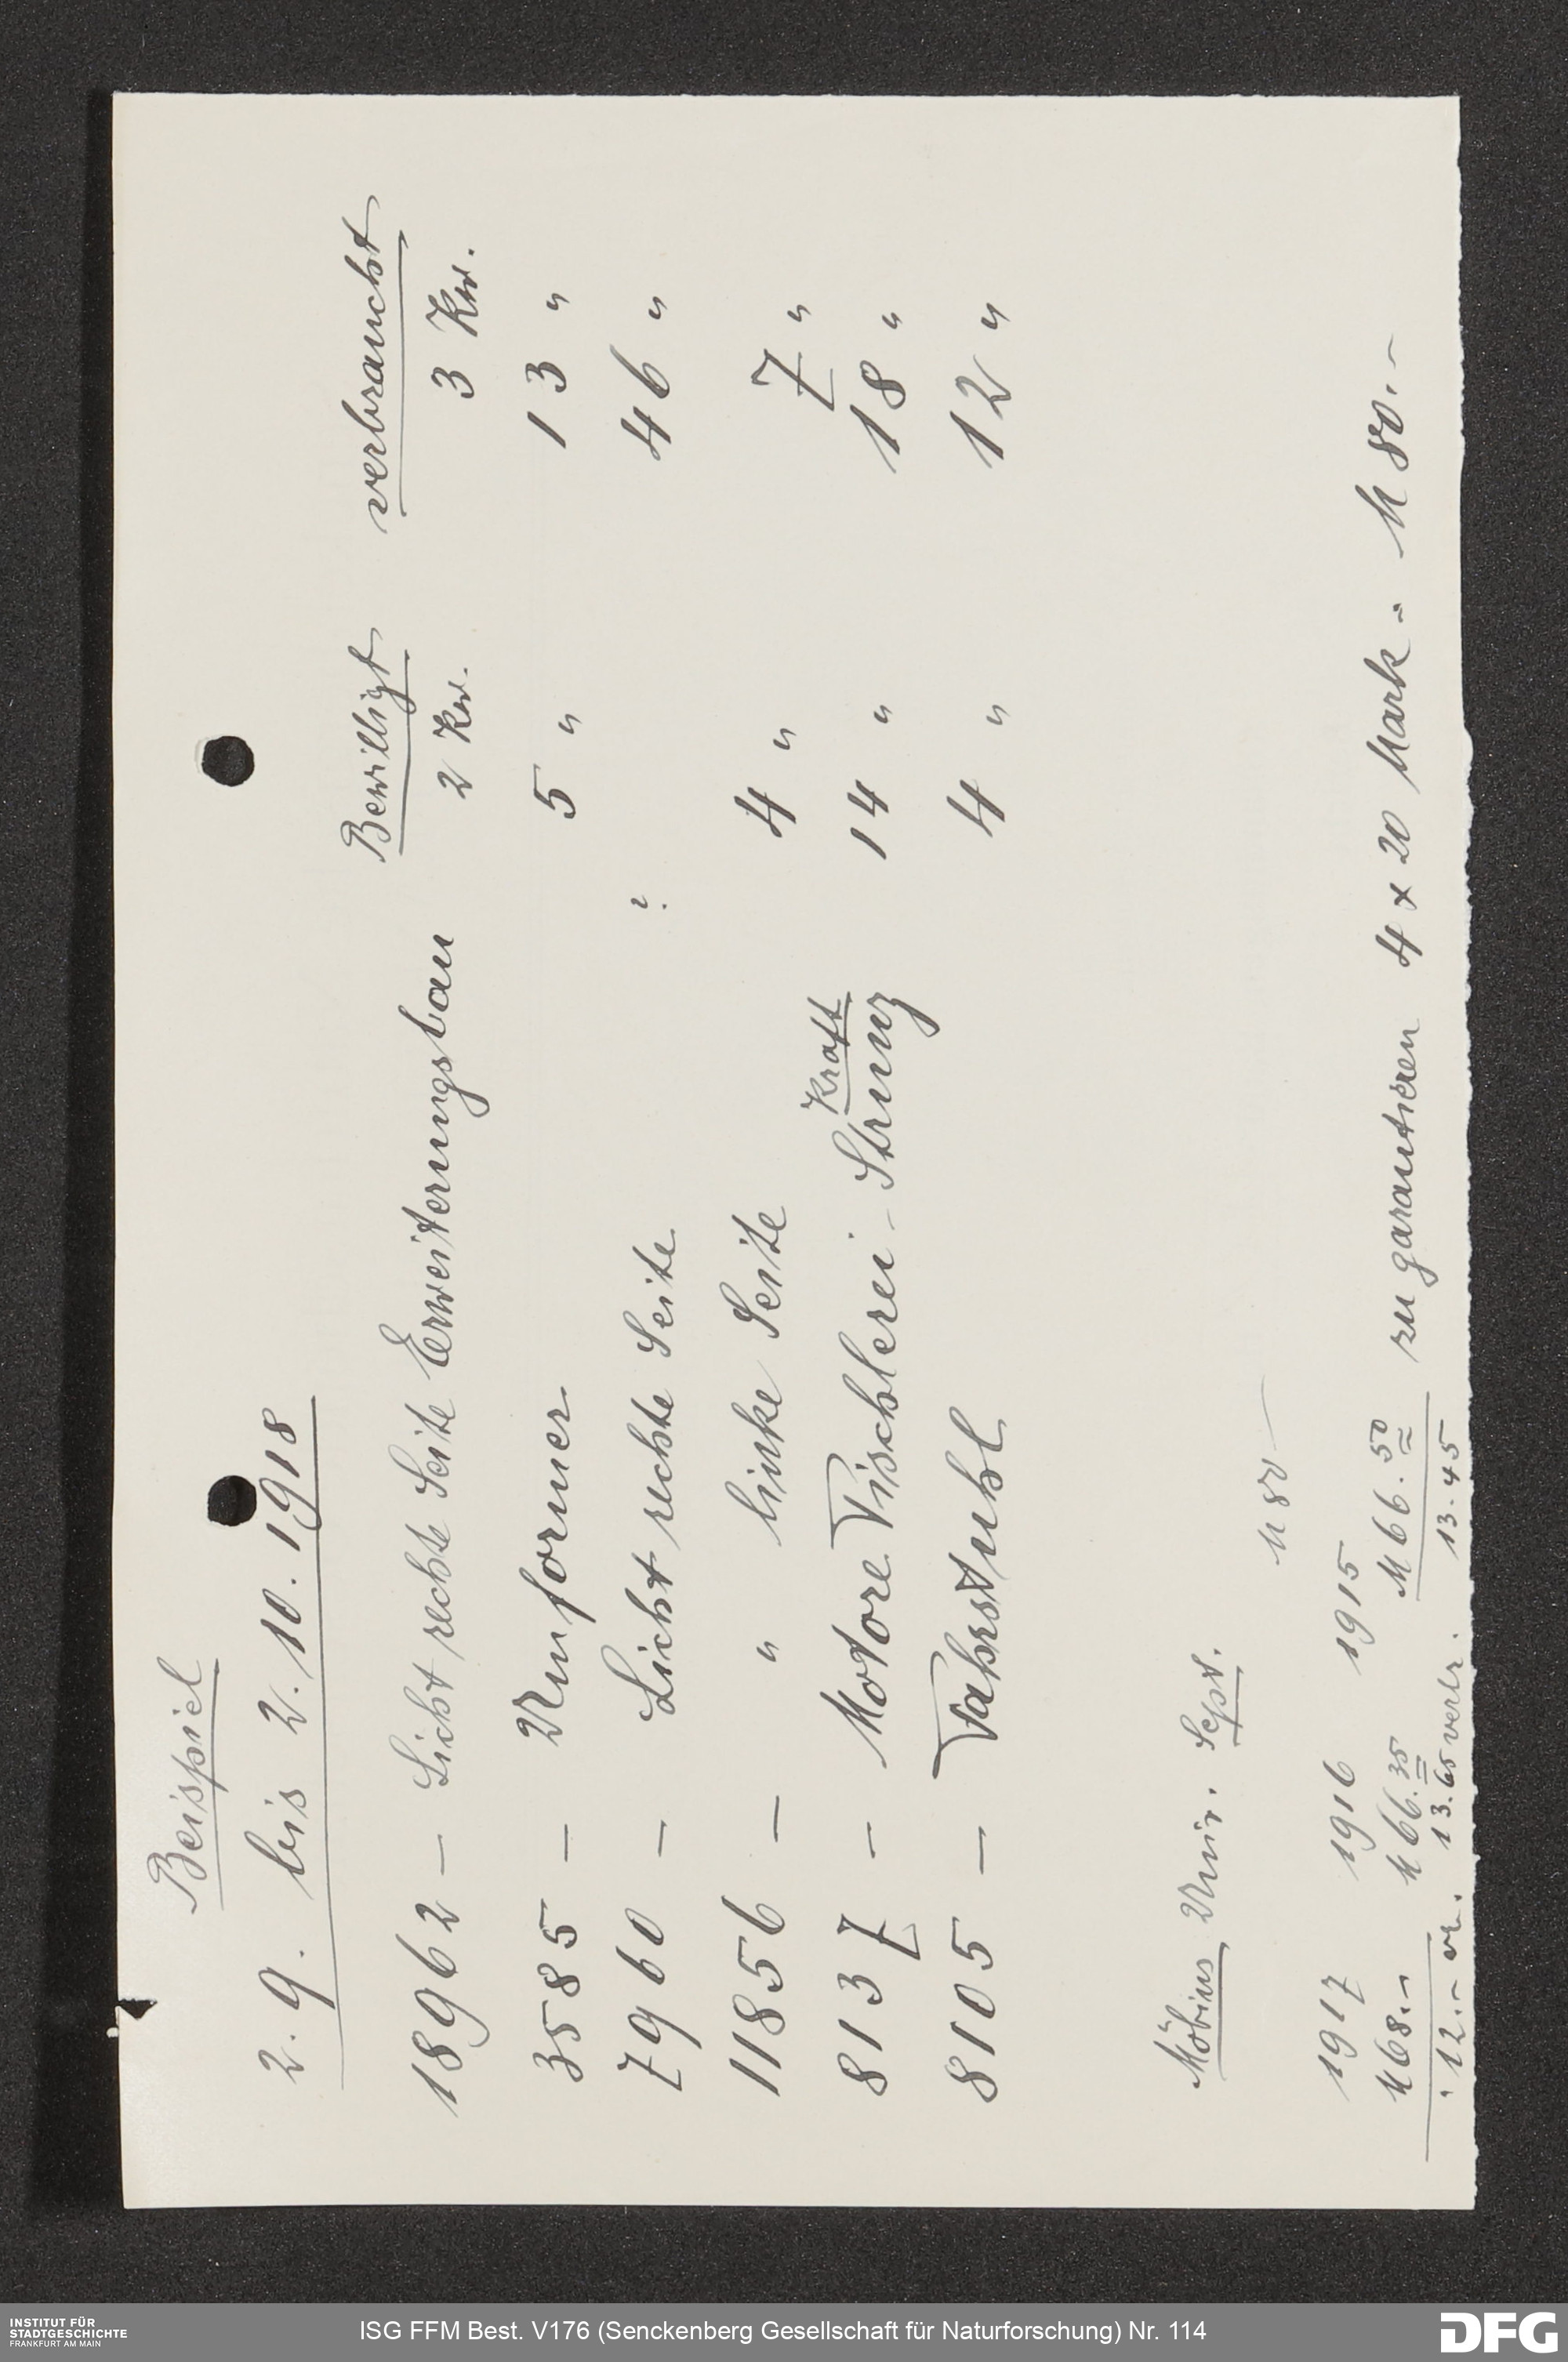 Beispiel
2. 9. bis 2. 10. 1918
Bewilligt verbraucht
18962 — Licht rechte Seite Erweiterungsbau 2 Kw. 3 Kw.
3585 — Umformer 5 " 13 "
7960 — Licht rechte Seite ? 46 "
11856 — " linke Seite 4 " 7 "
Kraft
8137 — Motore Tischlerei - Strunz 14 " 18 "
8105 — Fahrstuhl 4 " 12 "
Möbius Univ. Sept.
M 80 —
1917 1916 1915
M 68.– M 66.35 M 66.50 zu garantieren 4 x 20 Mark - M 80.–
12.– 13.65 verbr. 13.45
INSTITUT FÜR
STADTGESCHICHTE
FRANKFURT AM MAIN
ISG FFM Best. V176 (Senckenberg Gesellschaft für Naturforschung) Nr. 114
DFG